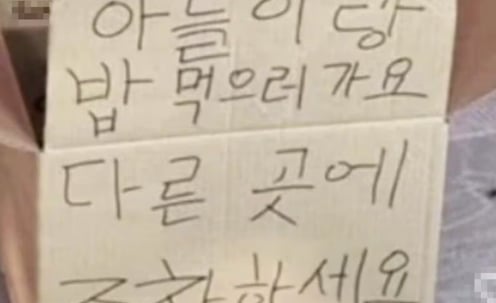 아들이랑
밥 먹으러 가요
다른 곳에
주차하세요